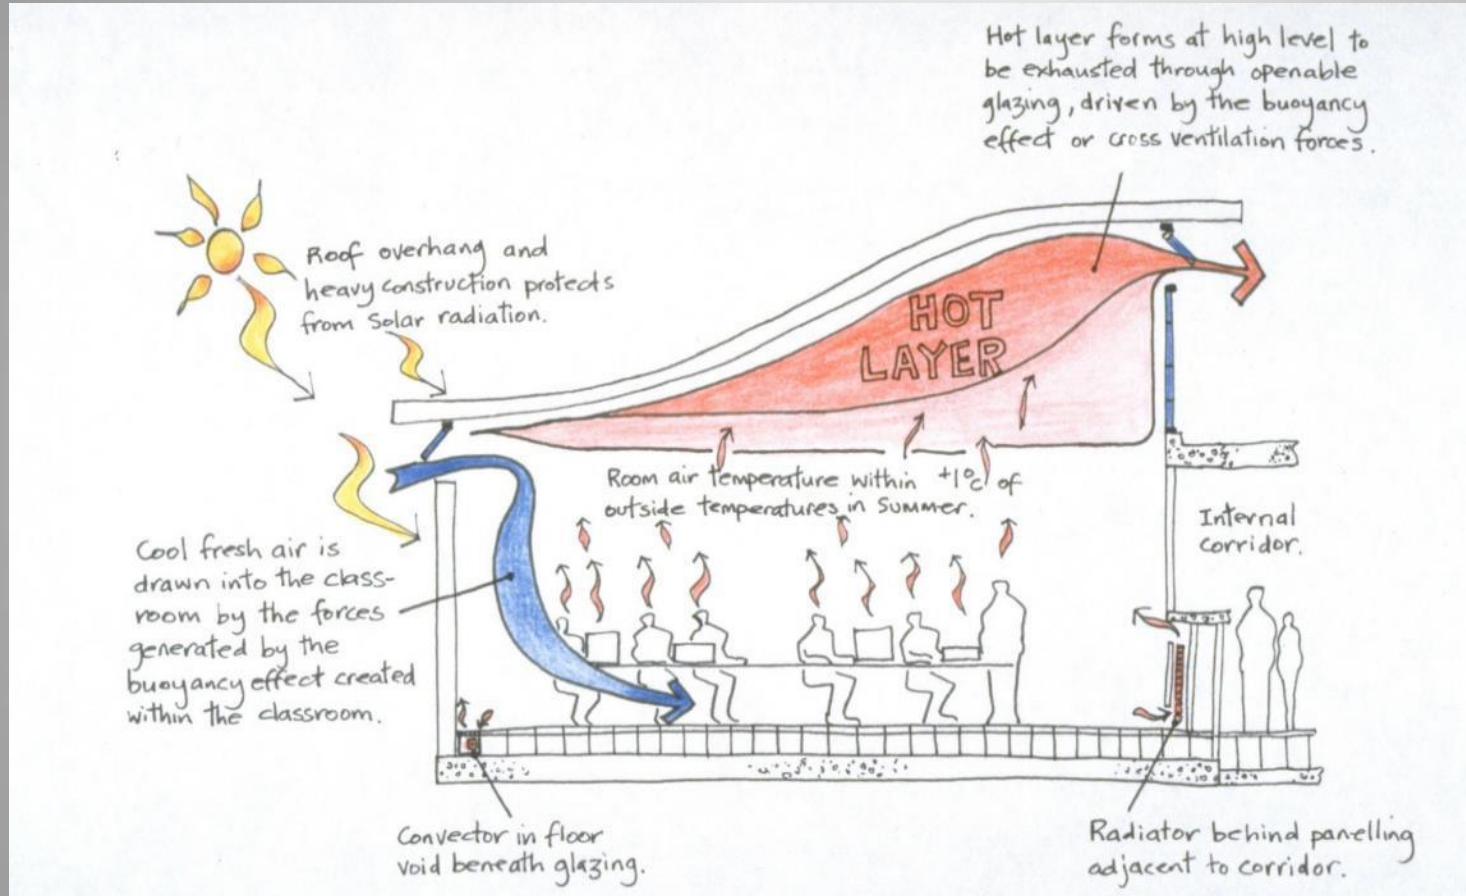 Hot layer forms at high level to
be exhausted through openable
glazing, driven by the buoyancy
effect or cross ventilation forces.
Roof overhang and
heavy construction protects
from Solar radiation.
HOT
LAYER
Room air temperature within +1°c of
outside temperatures in Summer.
Internal
Corridor.
Cool fresh air is
drawn into the class-
room by the forces
generated by the
buoyancy effect created
within the classroom.
Convector in floor
void beneath glazing.
Radiator behind panelling
adjacent to corridor.